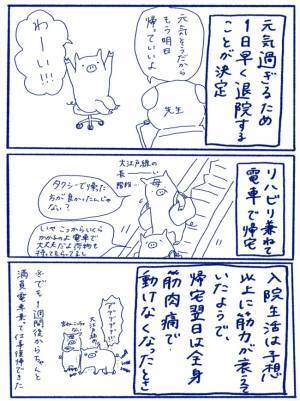 元気過ぎるため
1日早く退院する
ことが決定
元気そうだから
もう明日
帰っていいよ
先生
わーい!!!
リハビリ兼ねて
電車で帰宅
大江戸線の
長ーい
階段…
母
タクシーで帰った
方が良かったんじゃ
ない?
いやこっからいくら
かかるのよ電車で
大丈夫だよ荷物も
持ってもらってるし
入院生活は予想
以上に筋力が衰えて
いたようで、
帰宅翌日は全身
筋肉痛で
動けなくなったとさ
大江戸の
※でも1週間後からちゃんと
満員電車乗って仕事復帰できた